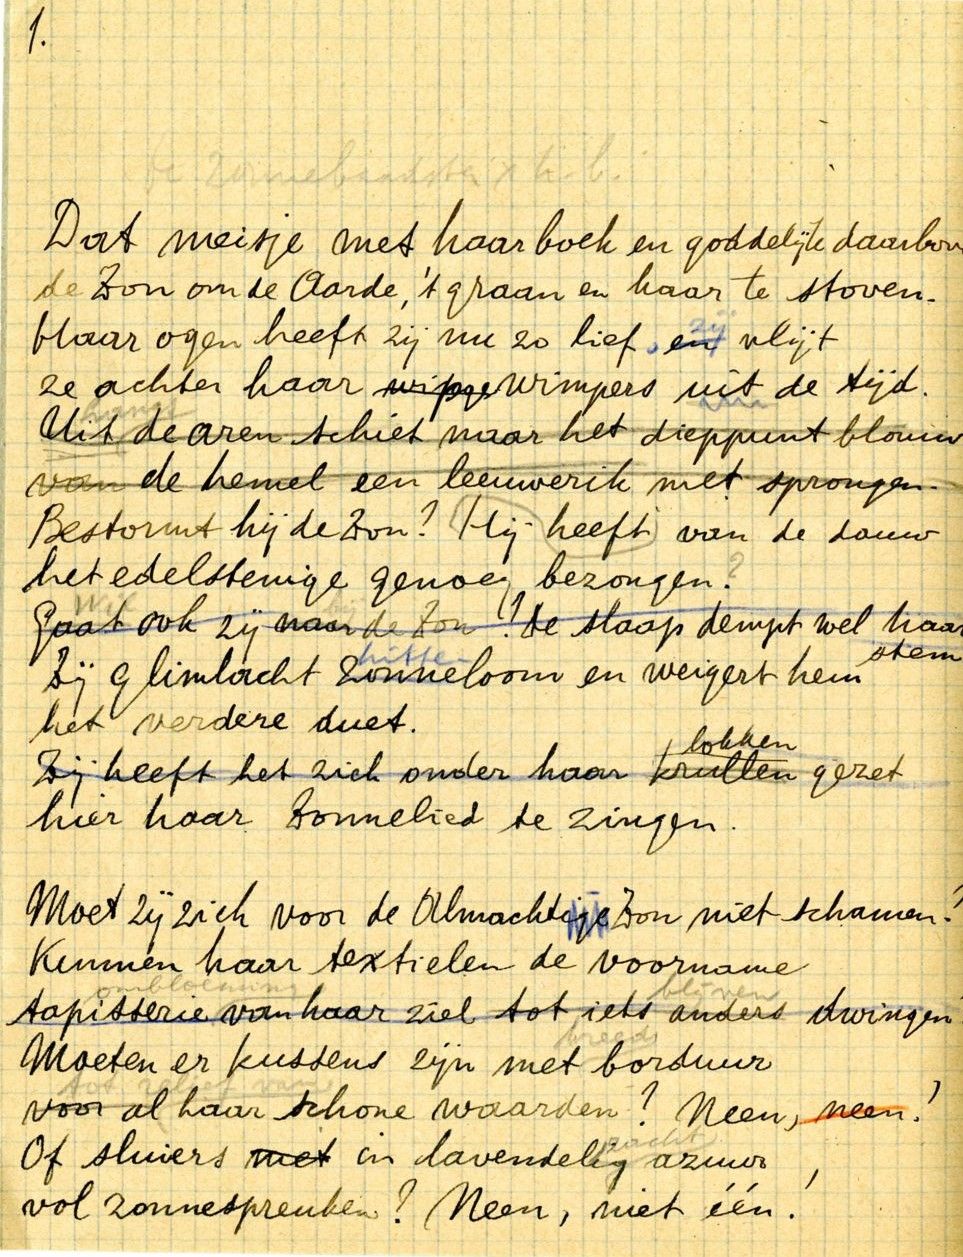 1.
De zonnebaadster
Dat meisje met haar boek en goddelijk daarboven
de Zon om de Aarde, 't graan en haar te stoven.
Haar ogen heeft zij nu zo lief, en zij vlijt
ze achter haar wimpers uit de tijd.
hangt
Uit de aren schiet naar het dieppunt blauw
van de hemel een leeuwerik met sprongen.
Bestormt hij de Zon? Hij heeft van de dauw
het edelstenige genoeg bezongen?
Wil bij
Gaat ook zij naar de Zon? De slaap dempt wel haar stem
hitte
Zij glimlacht zonneloom en weigert hem
het verdere duet.
lokken
Zij heeft het zich onder haar krullen gezet
hier haar Zonnelied te zingen.
Moet zij zich voor de Almachtige Zon niet schamen?
Kunnen haar textielen de voorname
ombloeming blijven
tapisserie van haar ziel tot iets anders dwingen
breeds
Moeten er kussens zijn met borduur
tot relief van
voor al haar schone waarden? Neen, neen!
zacht
Of sluiers met in lavendelig azuur
vol zonnespreuken? Neen, niet één!